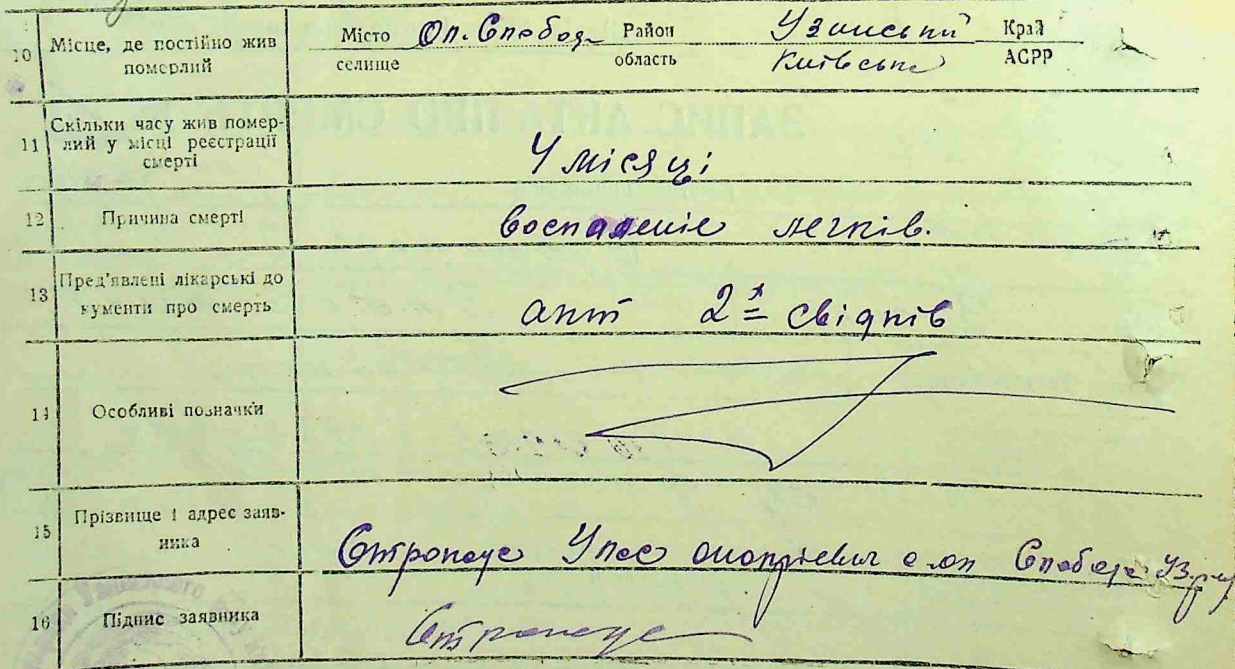 10 Місце, де постійно жив померлий Місто селище Оп. Слобода Район область Узинський Київська Край АСРР
11 Скільки часу жив помер-
лий у місці реєстрації
смерті
4 місяці
12 Причина смерті воспаленіе легків.
13 Пред'явлені лікарські до
кументи про смерть
акт 2х свідків
14 Особливі позначки
15 Прізвище і адрес заяв-
ника
оноприевич с. оп Слобода Уз. р-ну
16 Підпис заявника